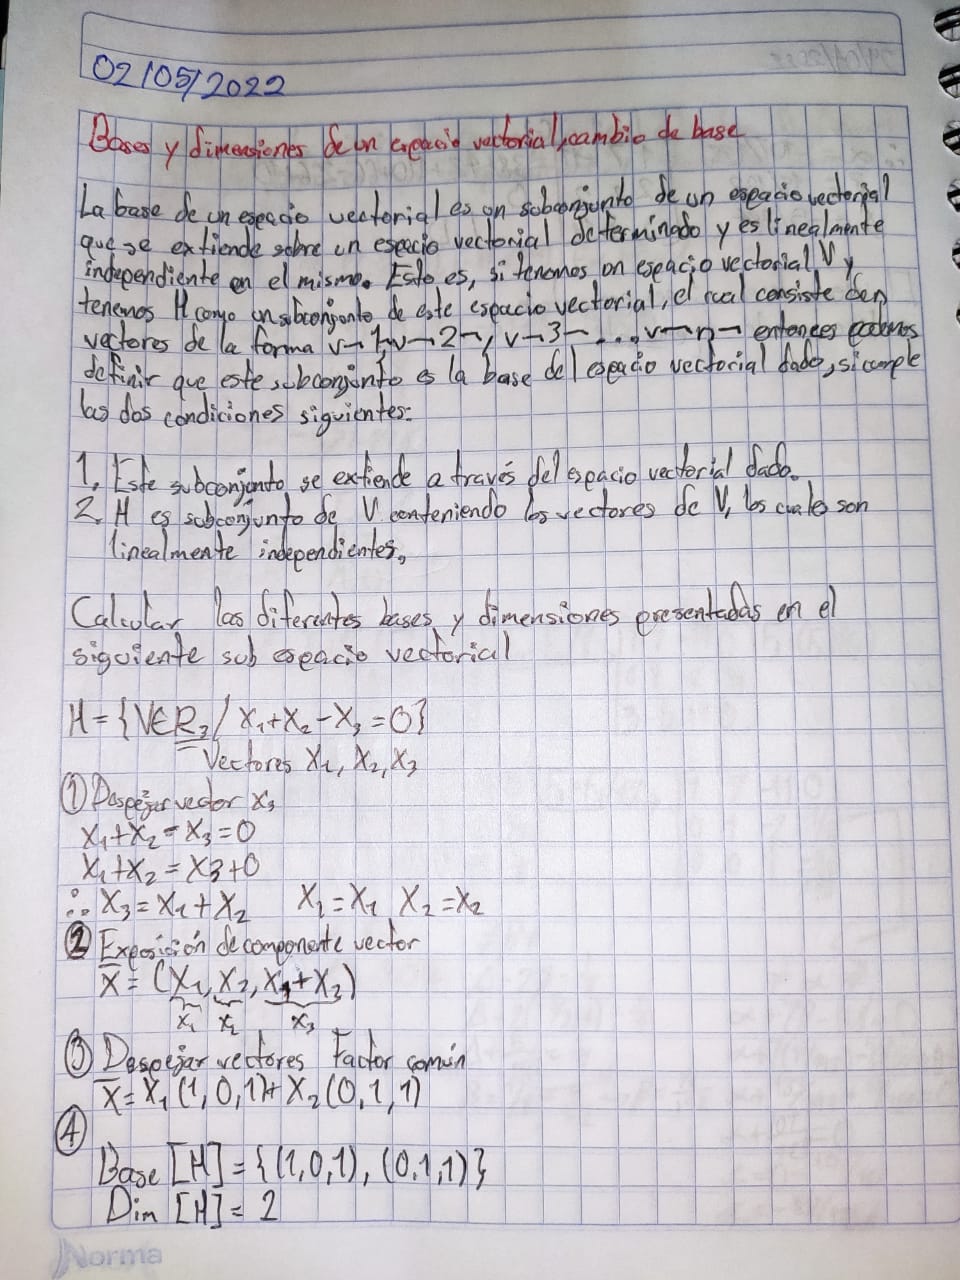 02/05/2022
Bases y dimensiones de un espacio vectorial, cambio de base
La base de un espacio vectorial es un subconjunto de un espacio vectorial
que se extiende sobre un espacio vectorial determinado y es linealmente
independiente en el mismo. Esto es, si tenemos un espacio vectorial V y
tenemos H como un subconjunto de este espacio vectorial, el cual consiste de n
vectores de la forma v→1, v→2¬, v→3¬ ..., v→n¬ entonces podemos
definir que este subconjunto es la base del espacio vectorial dado, si cumple
las dos condiciones siguientes:
1. Este subconjunto se extiende a través del espacio vectorial dado.
2. H es subconjunto de V conteniendo los vectores de V, los cuales son
linealmente independientes.
Calcular las diferentes bases y dimensiones presentadas en el
siguiente sub espacio vectorial
H = {V∈R₃ / X₁+X₂-X₃=0}
Vectores X₁, X₂, X₃
① Despejar vector X₃
X₁+X₂-X₃=0
X₁+X₂=X3+0
∴ X₃=X₁+X₂ X₁=X₁ X₂=X₂
② Exposición de componente vector
X̄=(X₁, X₂, X₁+X₂)
X₁ X₂ X₃
③ Despejar vectores Factor común
X̄=X₁(1,0,1)+X₂(0,1,1)
④
Base [H]={(1,0,1), (0,1,1)}
Dim [H]= 2
Norma